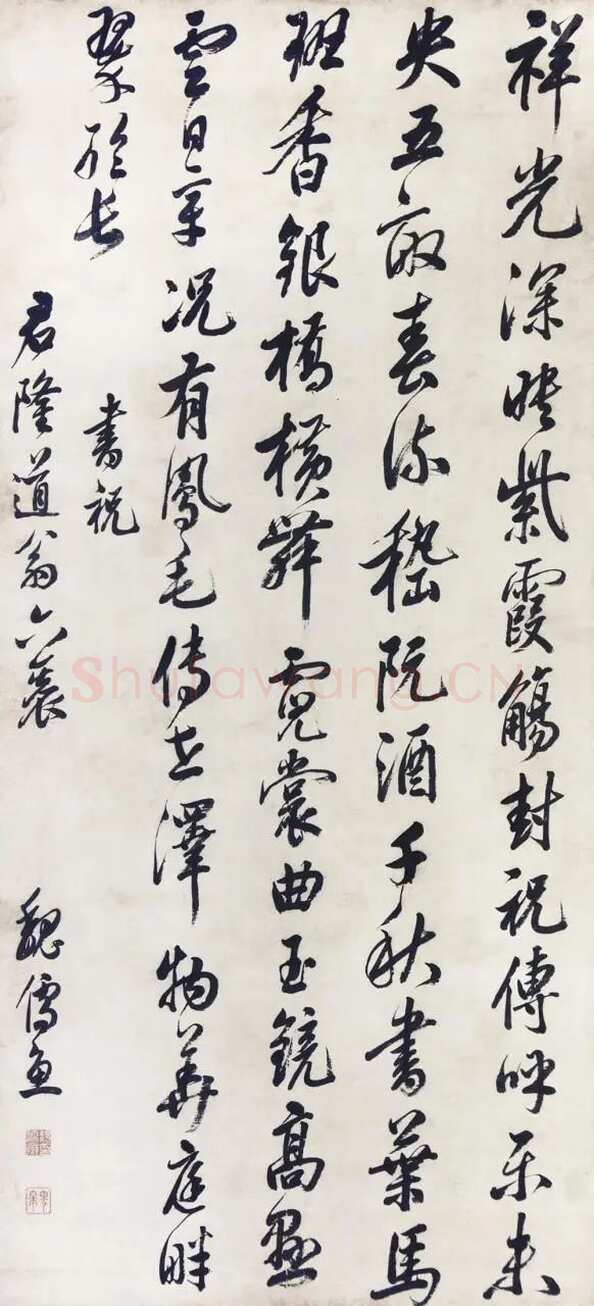 祥光深映紫霞觴封祝傳呼樂未
央五畝春流嵇阮酒千秋書業馬
班香銀橋橫舞霓裳曲玉鏡高懸
雲日章況有鳳毛傳世澤物華庭畔
翠於長
書祝
君隆道翁六袠
魏儒魚
Shufawang.CN